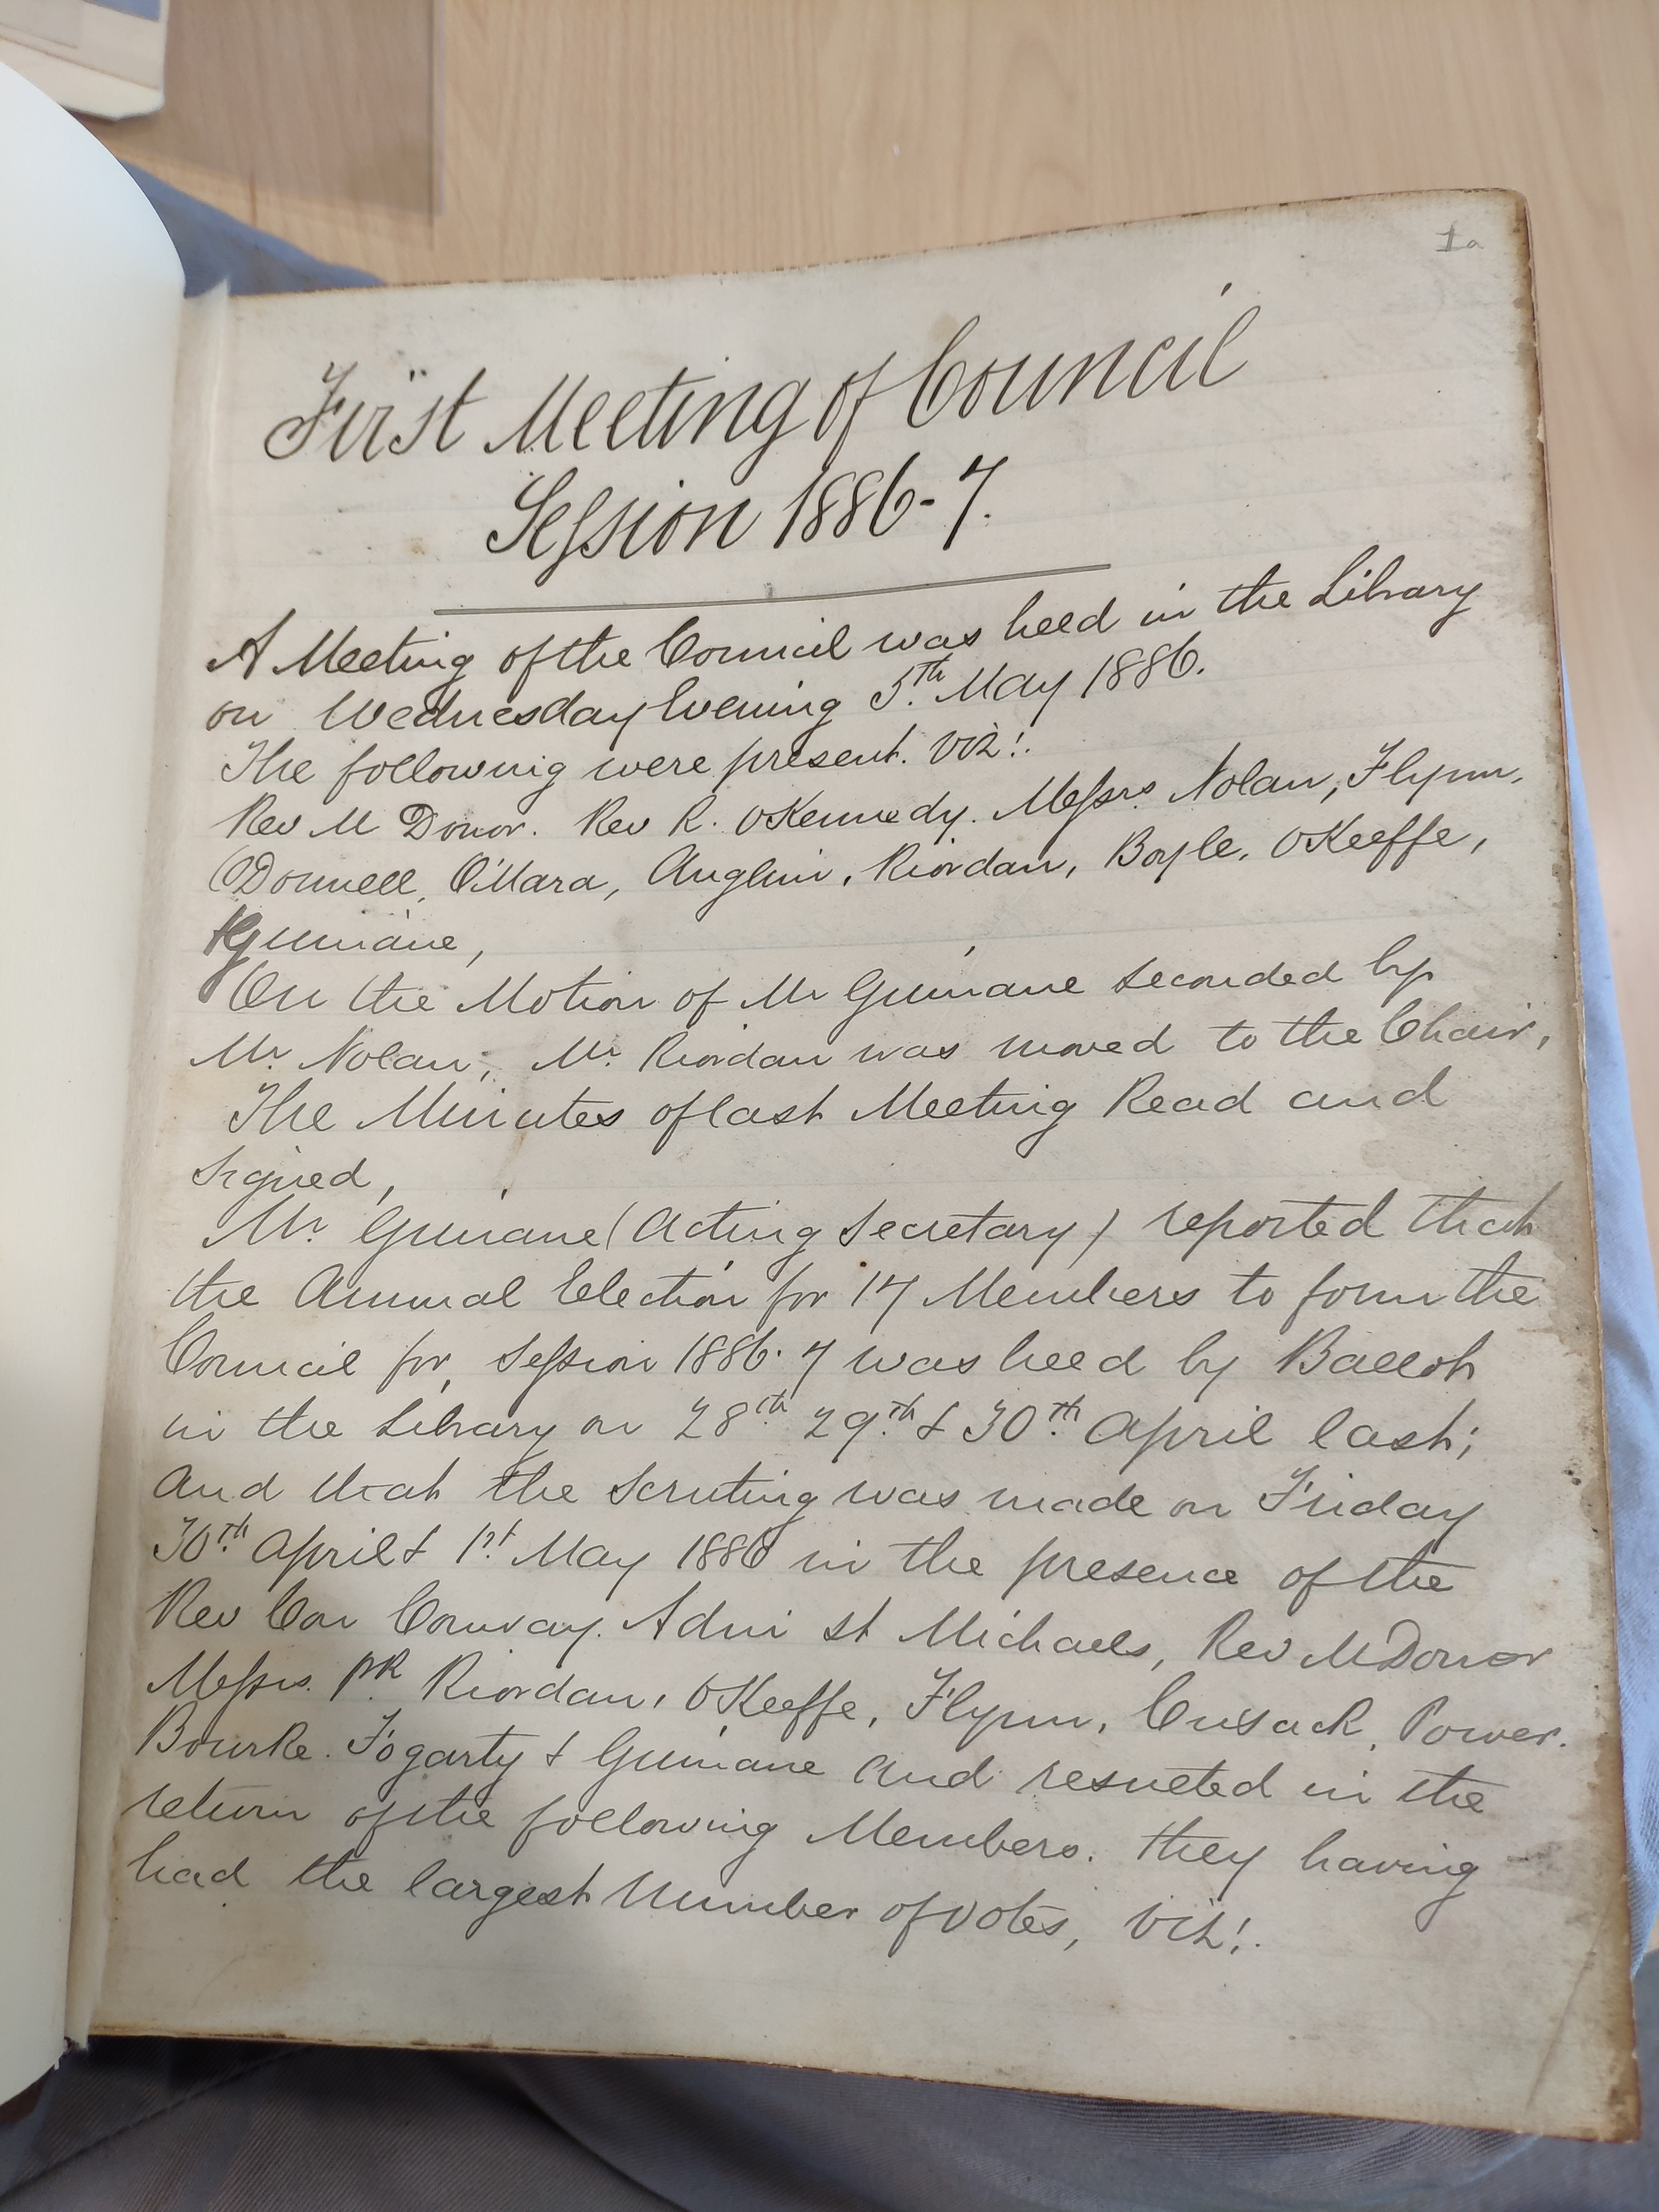 1a
First Meeting of Council
Session 1886-7.
A Meeting of the Council was held in the Library
on Wednesday Evening 5th. May 1886.
The following were present. viz!.
Rev M Donor. Rev R. OKennedy. Messrs. Nolan, Flynn.
ODonnell, O'Mara, Anglim, Riordan, Boyle, OKeeffe,
Guinane,
On the Motion of Mr Guinane seconded by
Mr. Nolan, Mr. Riordan was moved to the Chair,
The Minutes of last Meeting Read and
signed,
Mr. Guinane (Acting Secretary) reported that
the Annual Election for 17 Members to form the
Council for Session 1886-7 was held by Ballot
in the Library on 28th. 29th. & 30th. April last;
and that the Scrutiny was made on Friday
30th. April & 1st. May 1886 in the presence of the
Rev Con Conway. Adm St Michaels, Rev M Donor
Messrs. Pk. Riordan, OKeeffe, Flynn, Cusack, Power.
Bourke. Fogarty & Guinane and resulted in the
return of the following Members. they having
had the largest Number of votes, viz!.